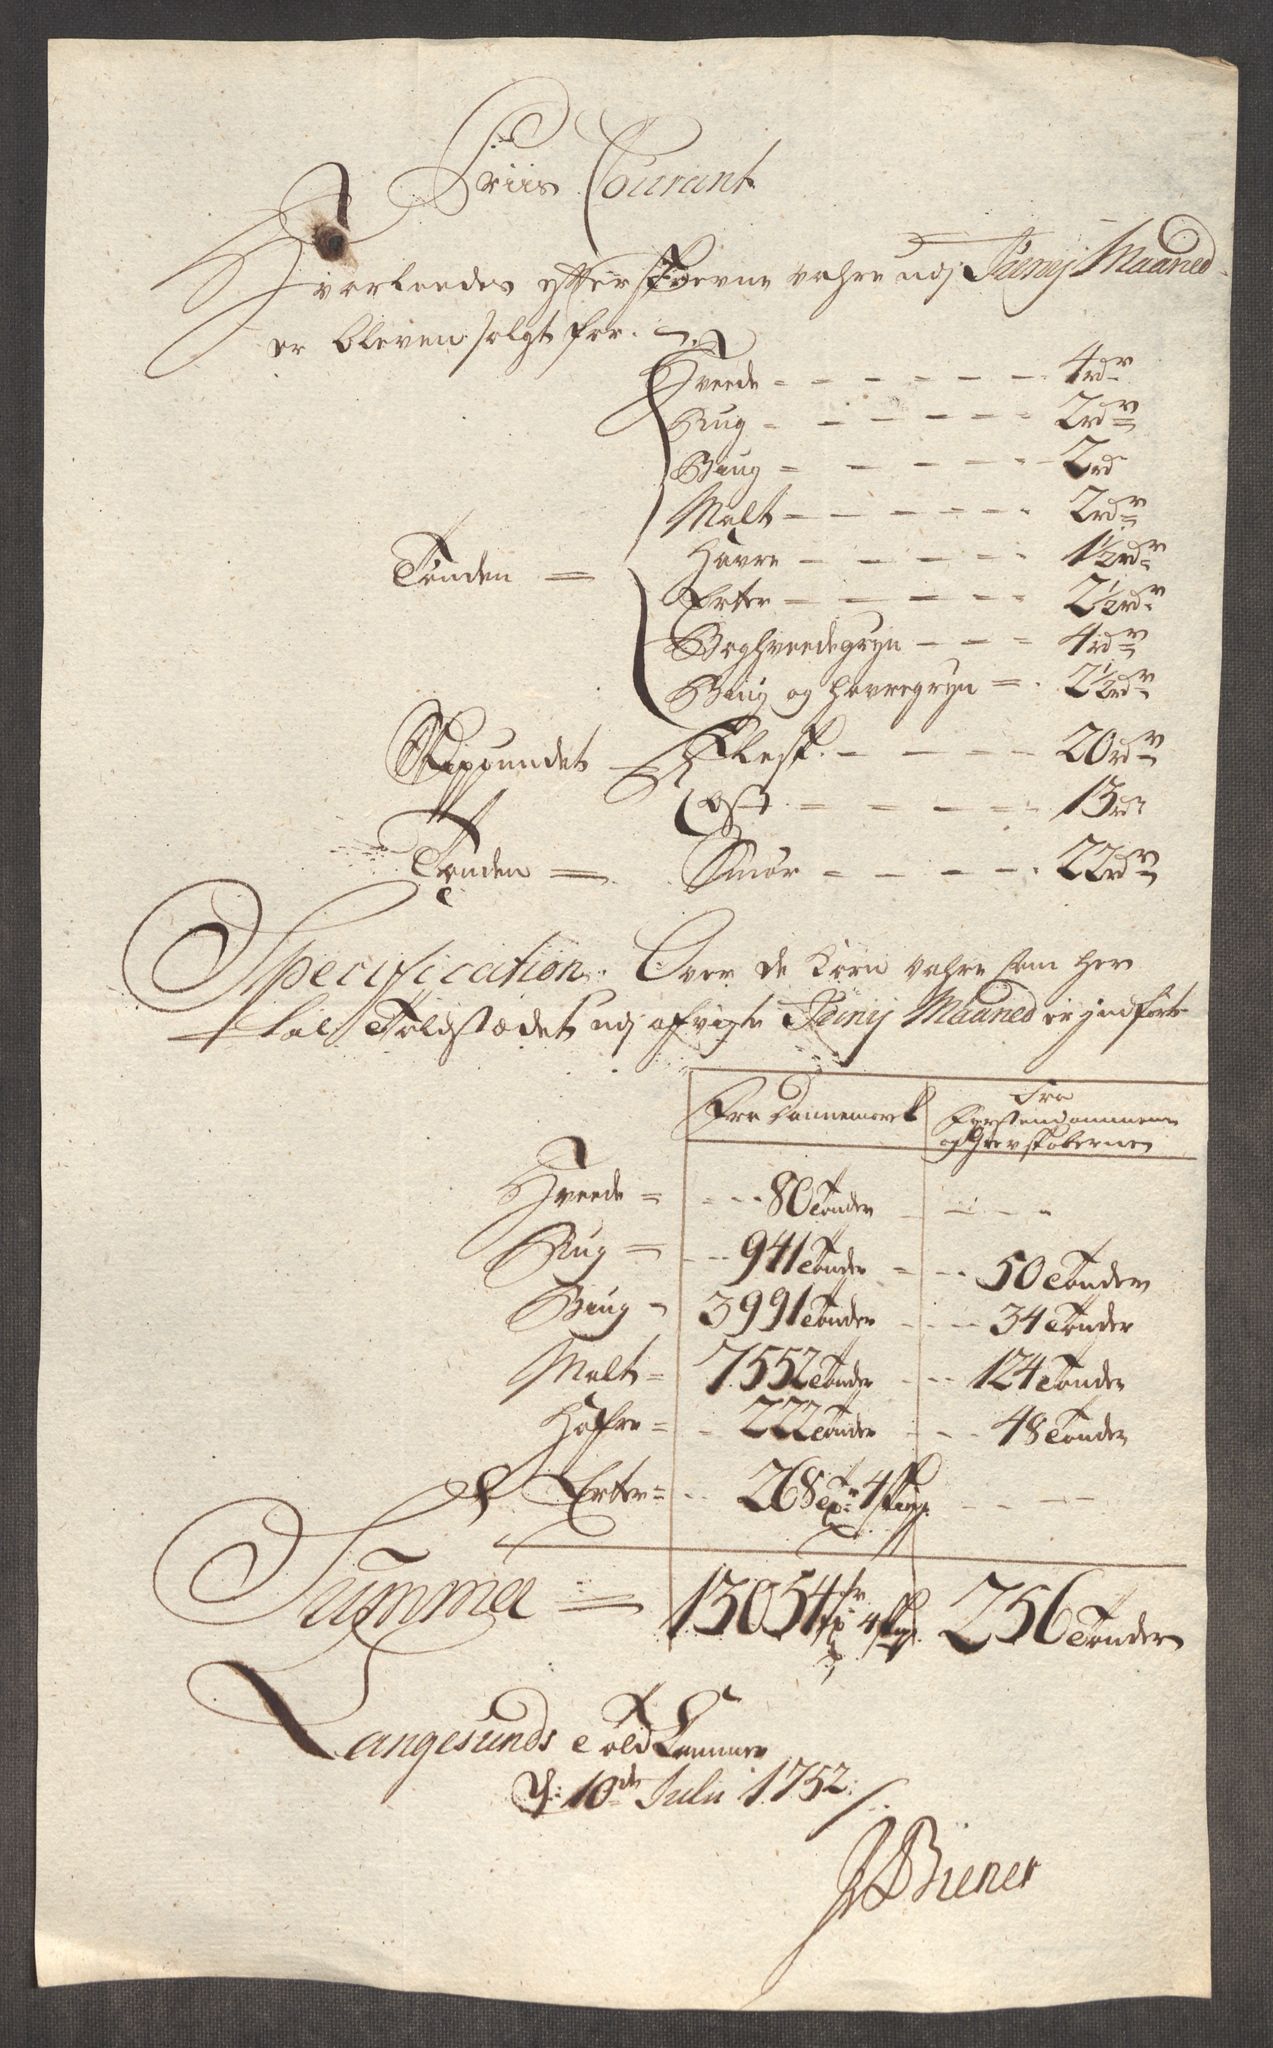 Priis Courant
Hvorleedes efterskrevne vahre udj Junij Maaned
er bleven solgt for.
Hveede - - - - - - 4 rdr
Rug - - - - - - 2 rdr
Biug - - - - - - 2 rd
Malt - - - - - - 2 rdr
Tønden = Havre - - - - - 1½ rdr
Erter - - - - - 2½ rdr
Boghveedegryn - - - 4 rdr
Biug og havregryn - 2½ rdr
Skippundet Flesk - - - - 20 rdr
Ost - - - - - 13 rdr
Tønden = Smør - - - - - 22 rdr
Specification. Over de Korn vahre som her
til Toldstædet udj afvigte Junij Maaned er jndførte
Fra Dannemarck Fra
Førstendømmene
og Grevskaberne
Hveede = - - - 80 Tønder - - - -
Rug = - - - 941 Tønder - - - 50 Tønder
Biug = 3991 Tønder - - - 34 Tønder
Malt = 7552 Tønder - - - 124 Tønder
Haffre = - 222 Tønder - - - 48 Tønder
Erter = - - 268 Tr 4 skp - - - -
Summa = 13054 Tr 4 skp. 256 Tønder
Langesunds Told Kammer
D: 10de Julii 1752.
Biener